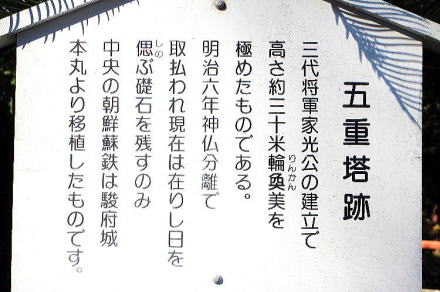 五重塔跡
三代将軍家光公の建立で
高さ約三十米輪奐美を
りんかん
極めたものである。
明治六年神仏分離で
取払われ現在は在りし日を
偲ぶ礎石を残すのみ
しの
中央の朝鮮蘇鉄は駿府城
本丸より移植したものです。